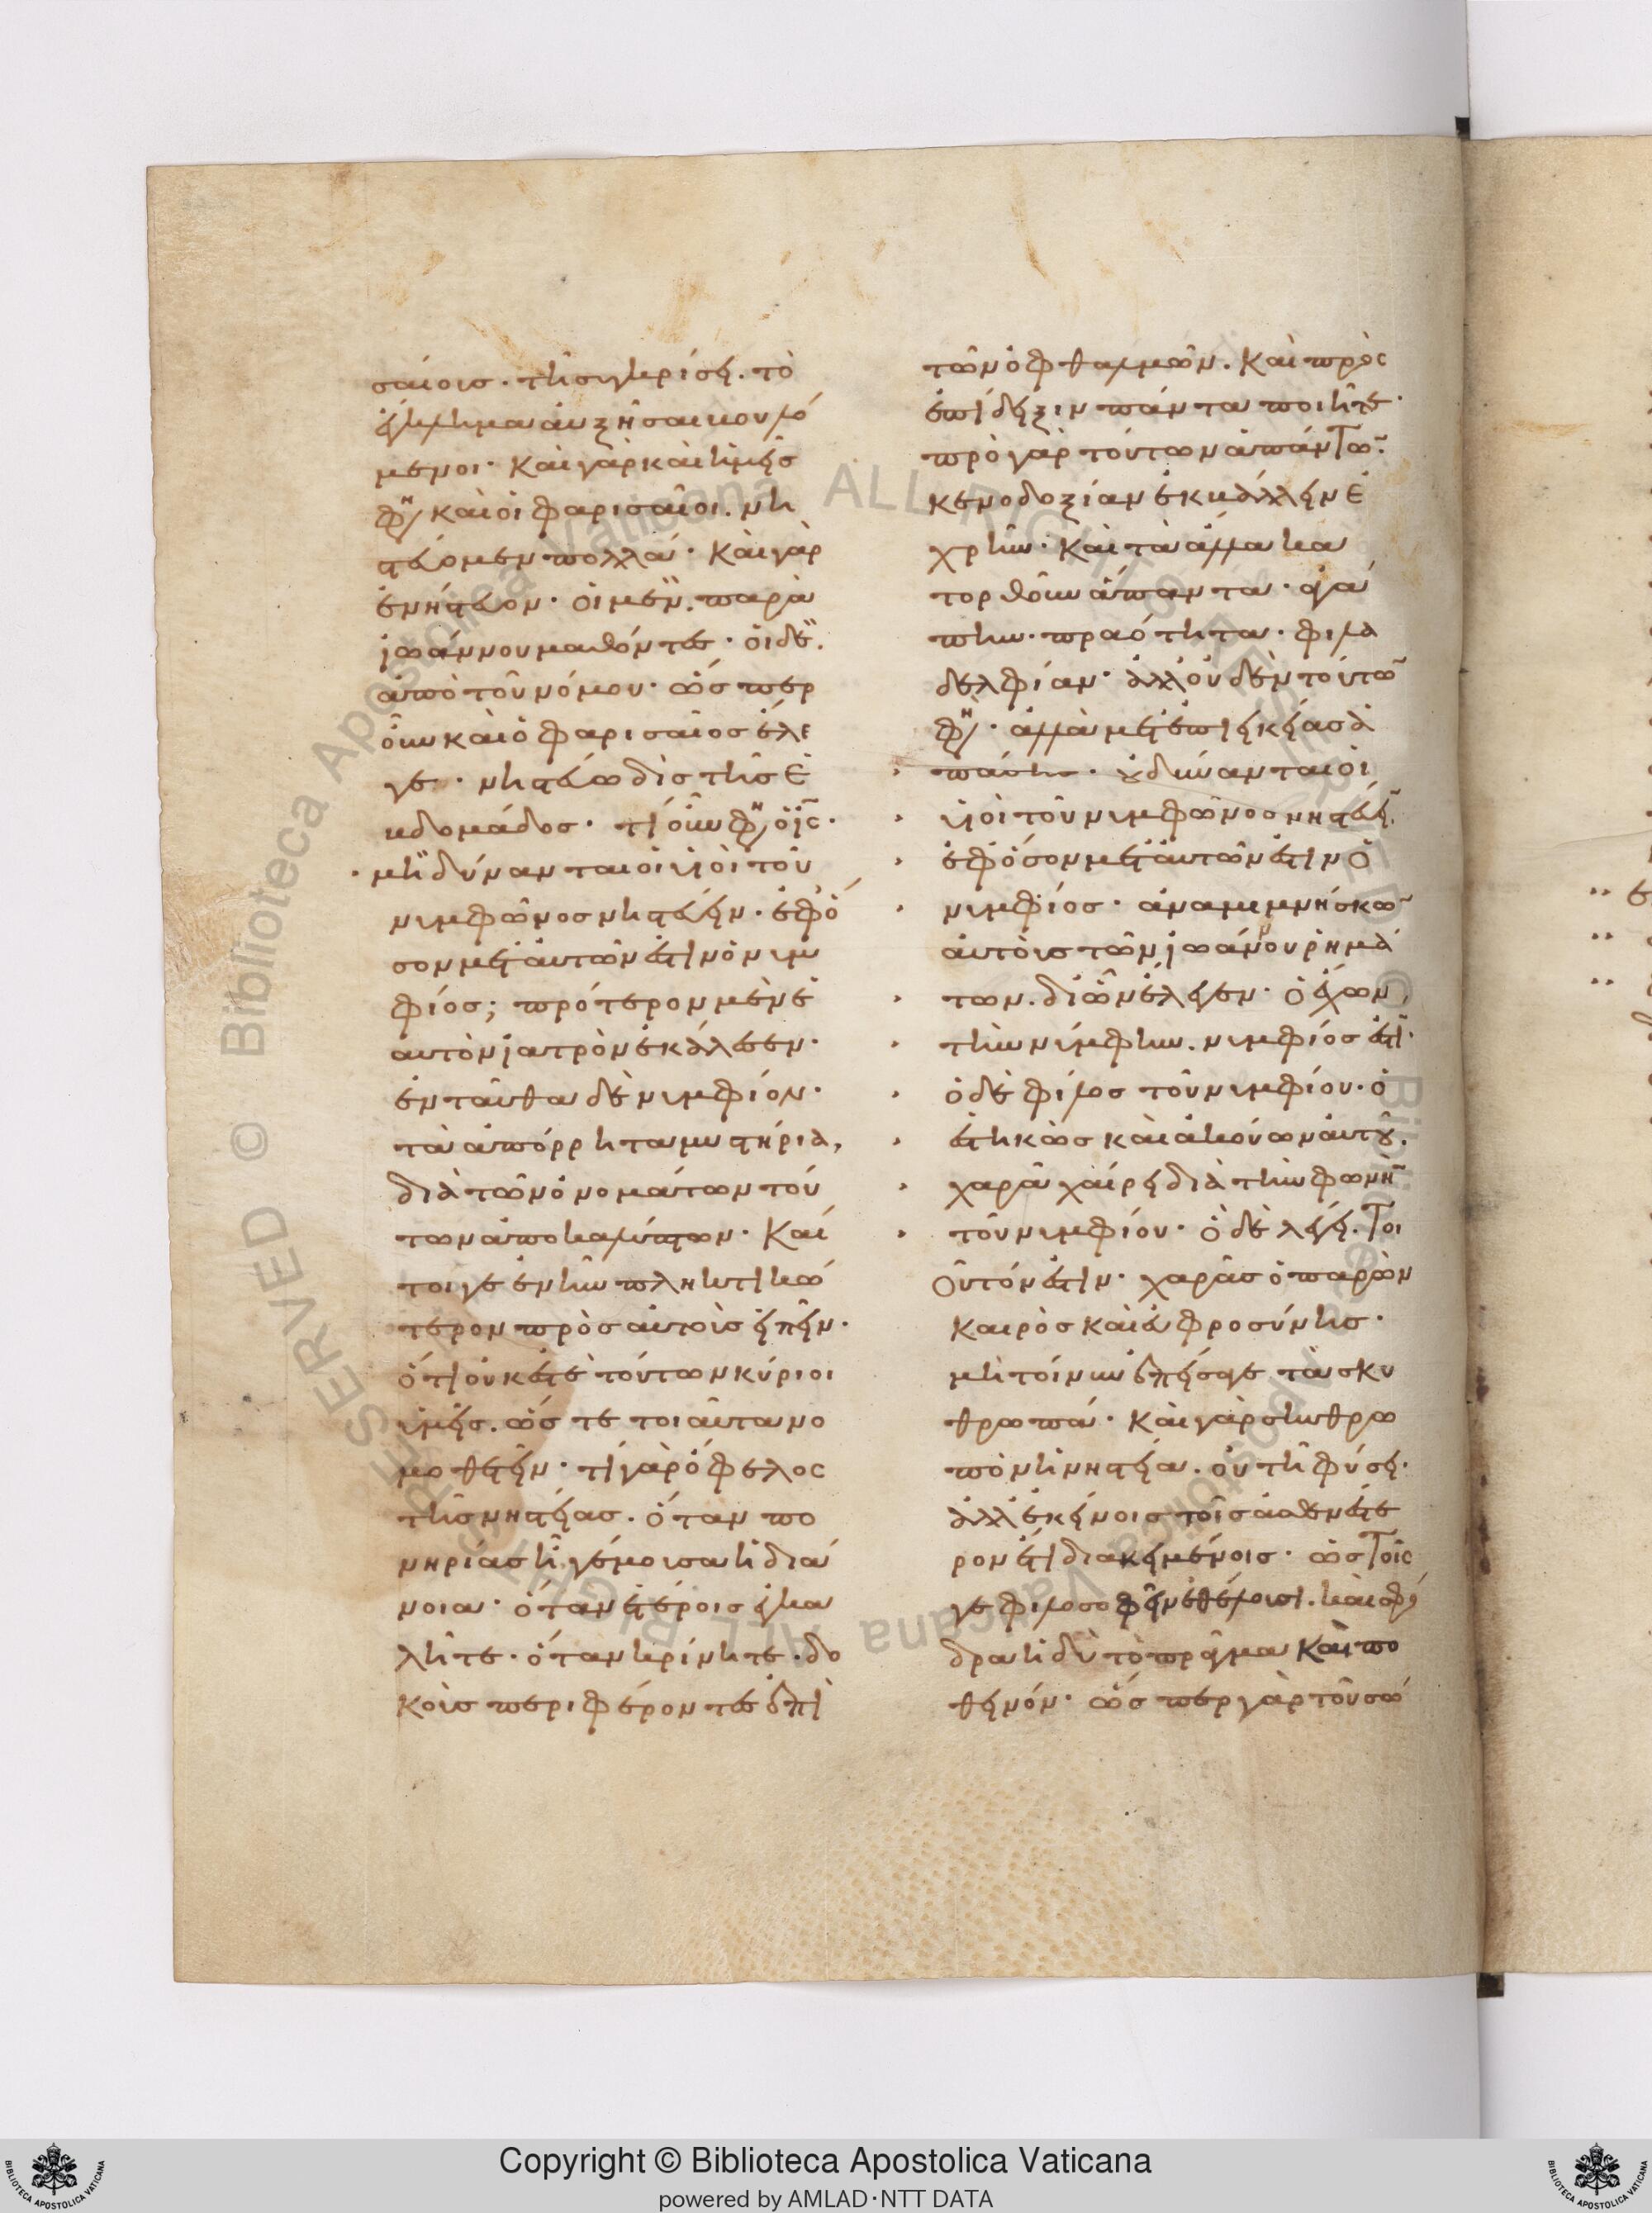 σαίοις. τῆ συγκρίσει. τὸ
ἔγκλημα αὐξῆσαι βουλό
μενοι· καὶ γὰρ καὶ ἡμεῖς
φη καὶ οἱ φαρισαῖοι. νη
στεύομεν πολλά· καὶ γὰρ
ἐνήστευον· οἱ μὲν. παρὰ
ἰωάννου μαθόντες· οἱ δὲ.
ἀπὸ τοῦ νόμου· ὥσπερ
οὖν καὶ ὁ φαρισαῖος ἔλε
γε· νηστεύω δὶς τῆς ἑ
βδομάδος· τί οὖν φη ὁ ις·
μὴ δύνανται οἱ υἱοὶ τοῦ
νυμφῶνος νηστεύειν. ἐφό
σον μετ' αὐτῶν ἐστὶν ὁ νυμ
φίος; πρότερον μὲν ἑ
αυτὸν ἰατρὸν ἐκάλεσεν·
ἐνταῦθα δὲ νυμφίον·
τὰ ἀπόρρητα μυστήρια,
διὰ τῶν ὀνομάτων τού
των ἀποκαλύπτων· καί
τοιγε ἐνῆν πληκτικώ
τερον πρὸς αὐτοὺς εἰπεῖν·
ὅτι οὐκ ἐστὲ τούτων κύριοι
ὑμεῖς. ὥστε τοιαῦτα νο
μοθετεῖν· τί γὰρ ὄφελος
τῆς νηστείας. ὅταν πο
νηρίας ἦ γέμουσα ἡ διά
νοια· ὅταν ἑτέροις ἐγκα
λῆτε. ὅταν κρίνητε. δο
κοὺς περιφέροντες ἐπὶ
τῶν ὀφθαλμῶν. καὶ πρὸς
ἐπίδειξιν πάντα ποιῆτε·
πρὸ γὰρ τούτων ἁπάντω̅·
κενοδοξίαν ἐκβάλλειν ἐ
χρῆν· καὶ τὰ ἄλλα κα
τορθοῦν ἅπαντα· ἀγά
πην. πραότητα. φιλα
δελφίαν· ἀλλ' οὐδὲν τούτω̅
φη· ἀλλὰ μετ' ἐπιεικείας ἁ
πάσης. οὐ δύνανται οἱ
υἱοὶ τοῦ νυμφῶνος νηστεύει̅.
ἐφόσον μετ' αὐτῶν ἐστὶν ὁ
νυμφίος· ἀναμιμνήσκω̅
αὐτοὺς τῶν ἰωάννου ῥημά
των. δι' ὧν ἔλεγεν· ὁ ἔχων
τὴν νύμφην. νυμφίος ἐστί·
ὁ δὲ φίλος τοῦ νυμφίου· ὁ
ἑστηκὼς καὶ ἀκούων αὐτοῦ.
χαρᾶ χαίρει διὰ τὴν φωνὴ̅
τοῦ νυμφίου· ὃ δὲ λέγει. τοι
οῦτόν ἐστιν· χαρᾶς ὁ παρὼν
καιρὸς καὶ εὐφροσύνης·
μὴ τοίνυν ἐπείσαγε τὰ σκυ
θρωπά· καὶ γὰρ σκυθρω
πὸν ἡ νηστεία. οὐ τῆ φύσει·
ἀλλ' ἐκείνοις τοῖς ἀσθενέστε
ρον ἔτι διακειμένοις· ὡς τοῖς
γε φιλοσοφεῖν ἐθέλουσι. καὶ σφό
δρα ἡδὺ τὸ πρᾶγμα καὶ πο
θεινόν· ὥσπερ γὰρ τοῦ σώ
Copyright © Biblioteca Apostolica Vaticana
powered by AMLAD·NTT DATA